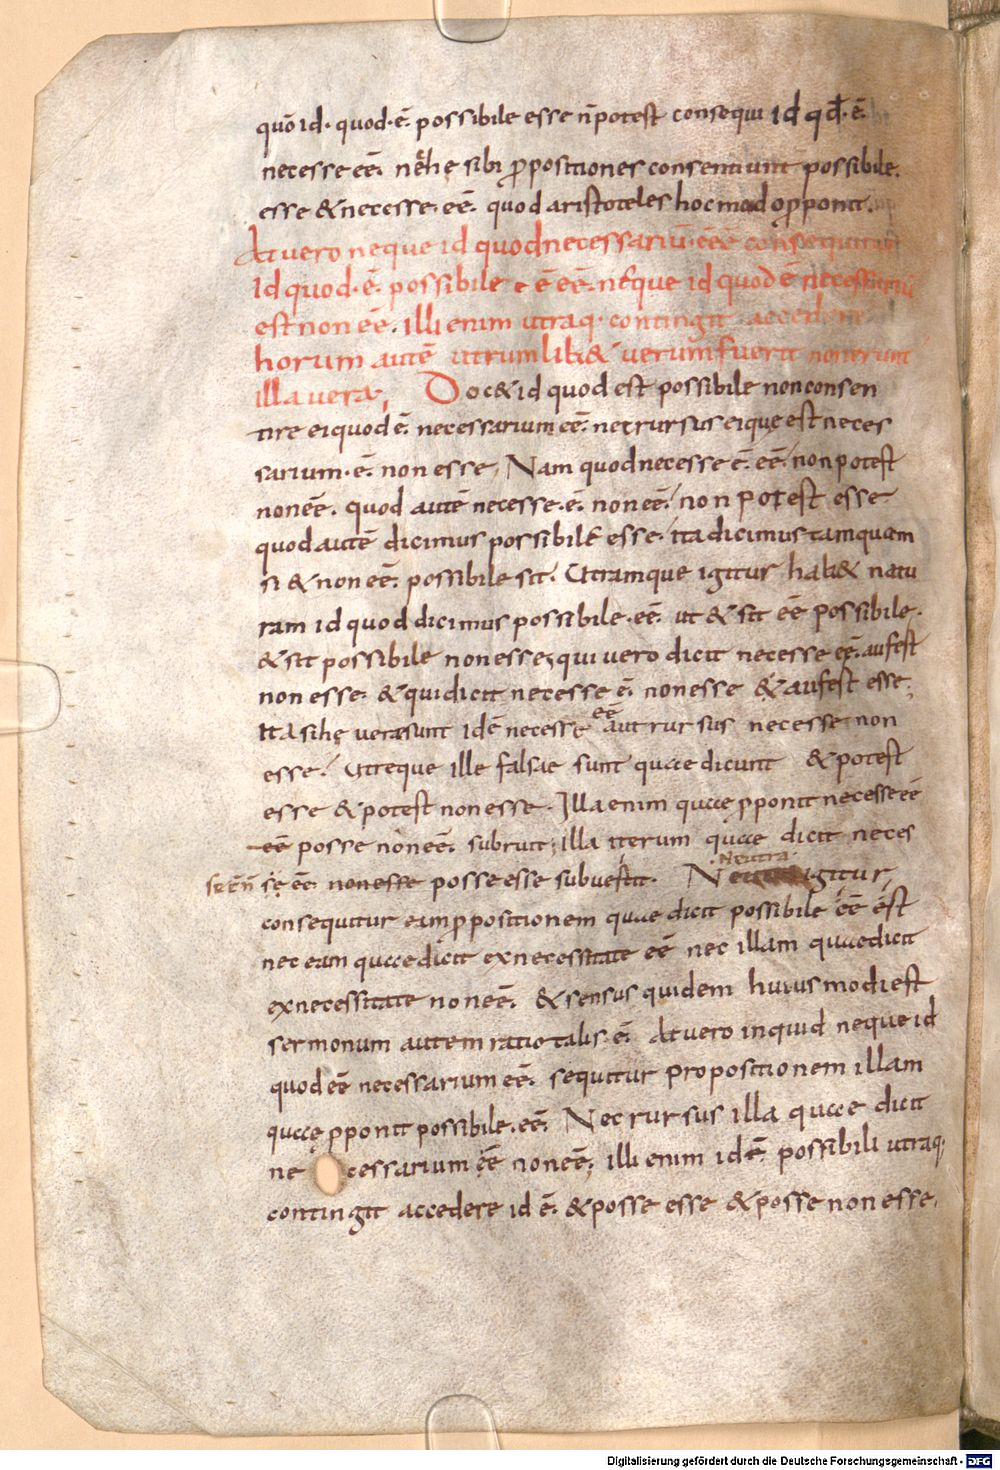 quō id · quod · ē · possibile esse n̄ potest consequi id qđ · ē ·
necesse eē · nec̄ hę sibi ꝓpositiones consentiunt possibile ·
esse & necesse · eē · quod aristoteles hoc modo ꝓponit ·
At vero neque id quod necessariū · eē consequitur
Id quod · ē · possibile eē · neque id quod ē necessariū
est non eē · illi enim utraq · contingit accedere
horum autē utrumlib& verum fuerit non erunt
illa vera, Doc& id quod est possibile non consen
tire ei quod ē · necessarium eē · nec rursus ei quę est neces
sarium · ē · non esse, Nam quod necesse ē · eē · non potest
non eē · quod autē necesse · ē · non eē · non potest esse
quod autē dicimus possibile esse · ita dicimus tamquam
si & non eē · possibile sit · Utramque igitur hab& natu
ram id quod dicimus possibile · eē · ut & sit eē possibile ·
& sit possibile non esse, qui vero dicit necesse eē · aufest
non esse · & qui dicit necesse ē · non esse & aufest esse ;
Ita si hę verae sunt id ē necesse eē aut rursus necesse non
esse · Utreque ille falsae sunt quae dicunt & potest
esse & potest non esse · Illa enim quae ꝓponit necesse eē
eē posse non eē · subruit ; illa iterum quae dicit neces
sę eē · non esse posse esse subvestit · Neutra igitur,
consequitur eam ꝓpositionem quae dicit possibile eē est
nec eam quae dicit ex necessitate eē nec illam quae dicit
ex necessitate non eē · & sensus quidem huius modi est
sermonum autem ratio talis · ē · At vero inquid neque id
quod eē necessarium eē · sequitur propositionem illam
quae ꝓponit possibile · eē · Nec rursus illa quae dicit
ne cessarium eē non eē ; illi enim id ē possibili utraq ·
contingit accedere id ē · & posse esse & posse non esse ·
Digitalisierung gefördert durch die Deutsche Forschungsgemeinschaft - DFG